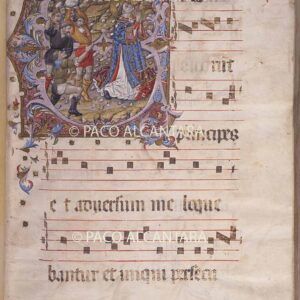 ederunt
© PACO ALCÁNTARA
principes
et adversum me loque
© PACO ALCÁNTARA
bantur et iniqui persecu